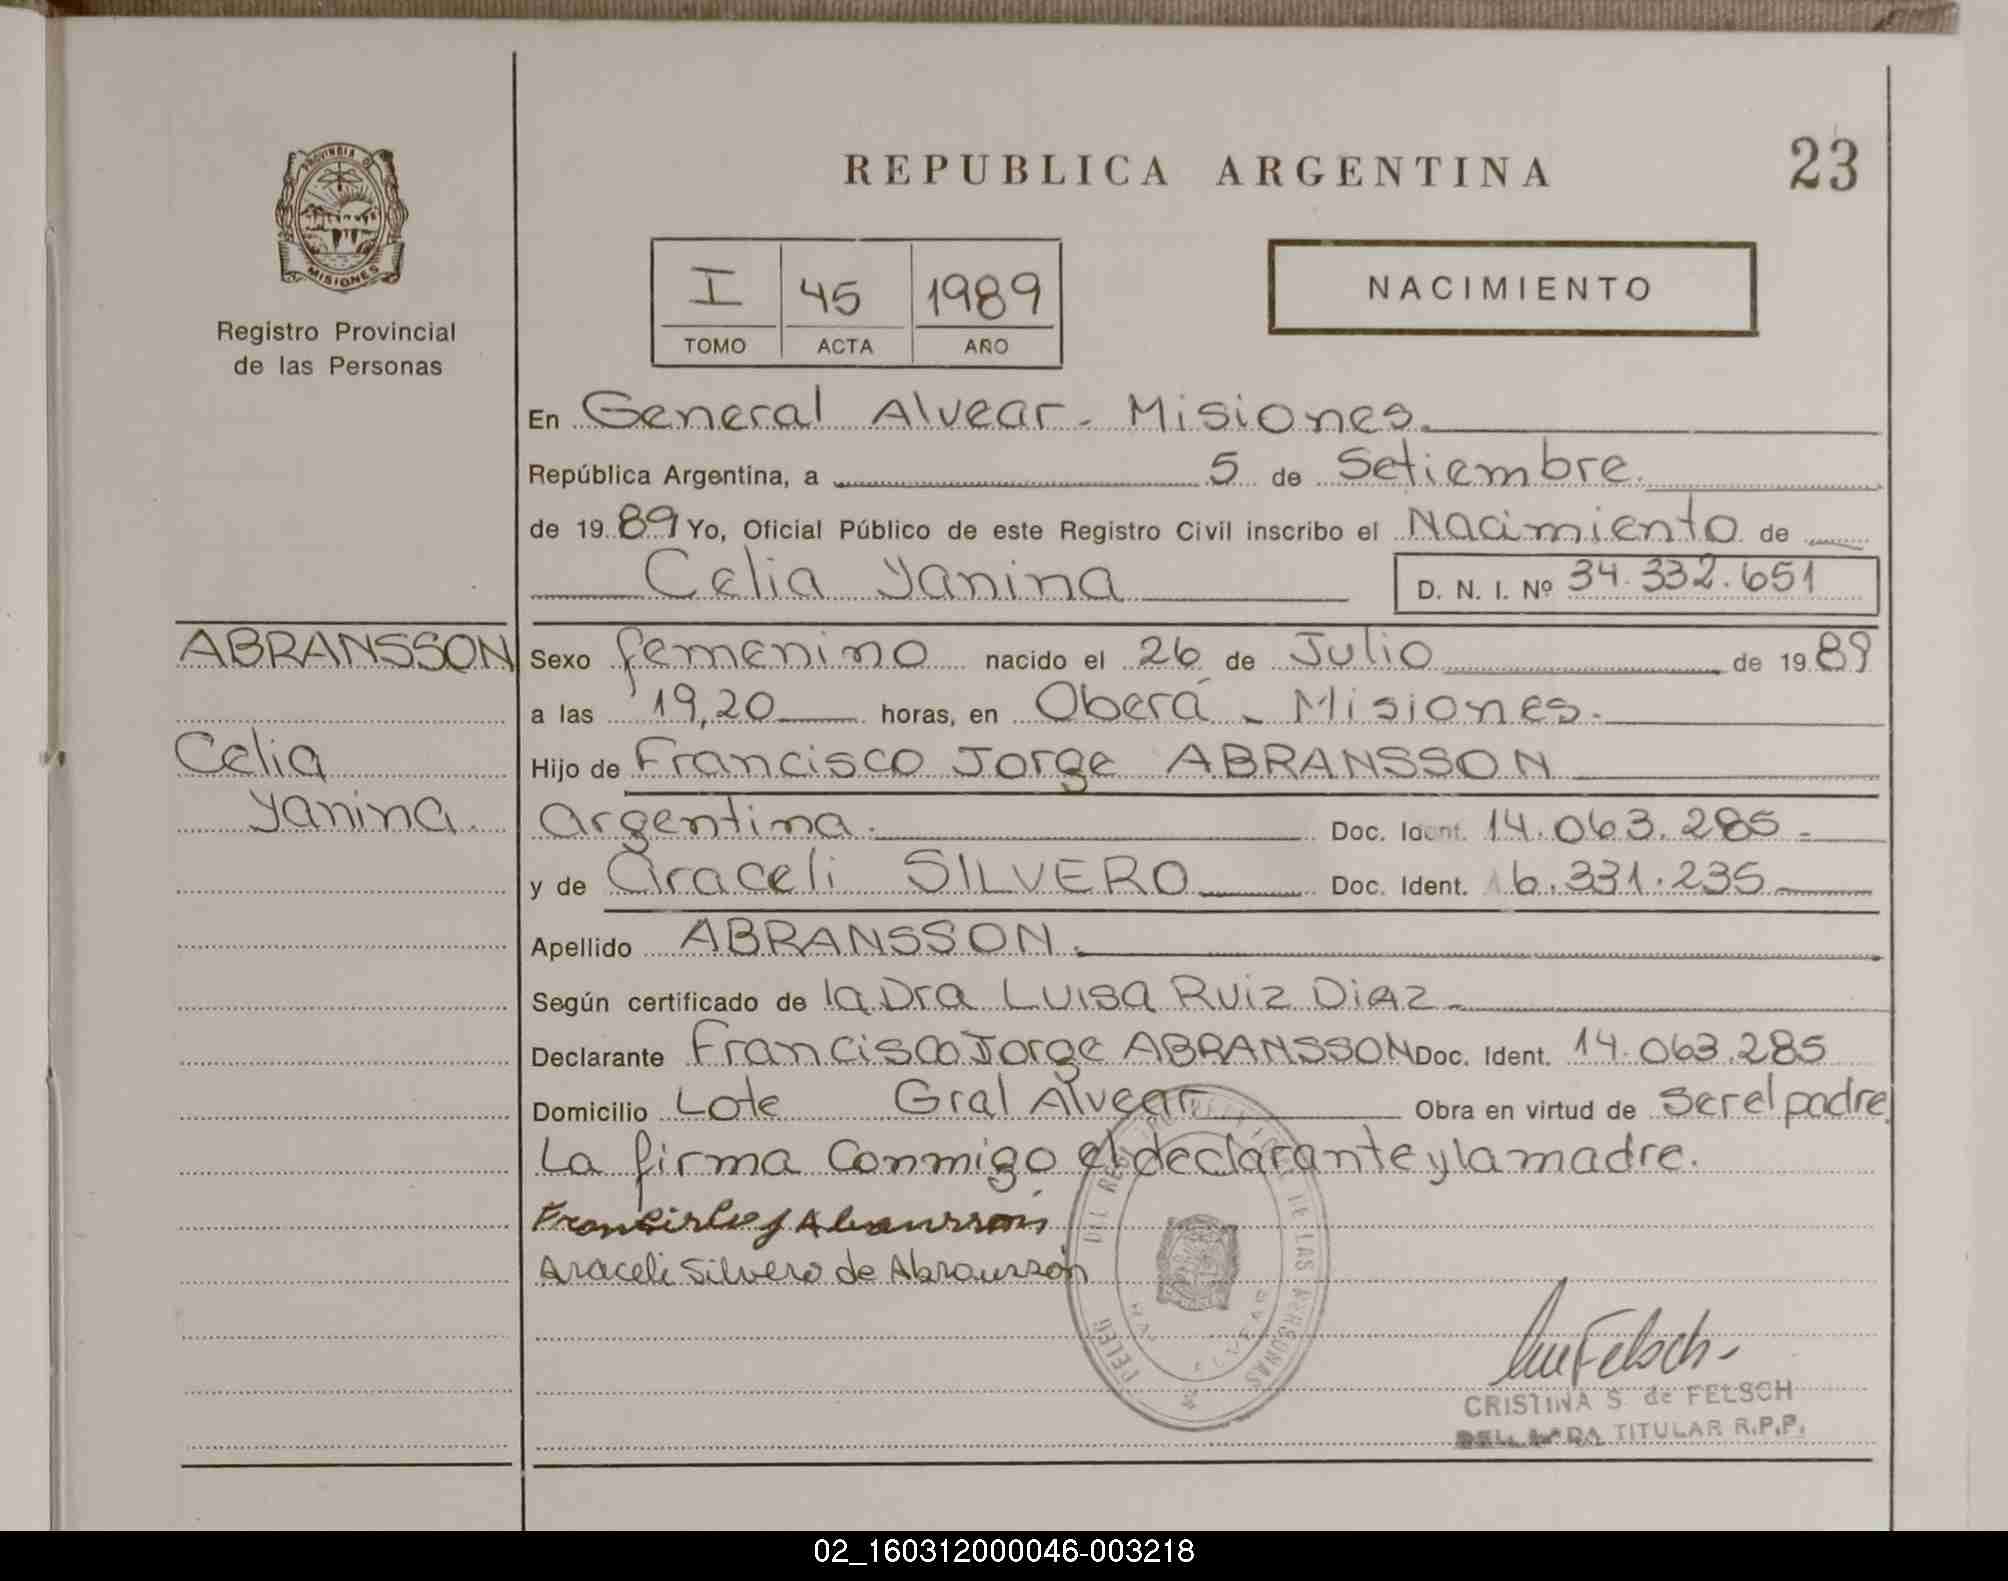 REPUBLICA ARGENTINA
23
PROVINCIA DE
MISIONES
Registro Provincial
de las Personas
I 45 1989
TOMO ACTA AÑO
NACIMIENTO
En General Alvear - Misiones.
República Argentina, a 5 de Setiembre.
de 19 89 Yo, Oficial Público de este Registro Civil inscribo el Nacimiento de
Celia Yanina D. N. I. Nº 34.332.651
ABRANSSON
Celia
Yanina
Sexo femenino nacido el 26 de Julio de 19 89
a las 19,20 horas, en Oberá - Misiones.
Hijo de Francisco Jorge ABRANSSON
Argentina. Doc. Ident. 14.063.285 -
y de Araceli SILVERO Doc. Ident. 6.331.235
Apellido ABRANSSON.
Según certificado de la Dra Luisa Ruiz Diaz -
Declarante Francisco Jorge ABRANSSON Doc. Ident. 14.063.285
Domicilio Lote Gral Alvear Obra en virtud de ser el padre
La firma conmigo el declarante y la madre.
Araceli Silvero de Abransson
DE LAS PERSONAS
CRISTINA S. de FELSCH
TITULAR R.P.P.
02_160312000046-003218